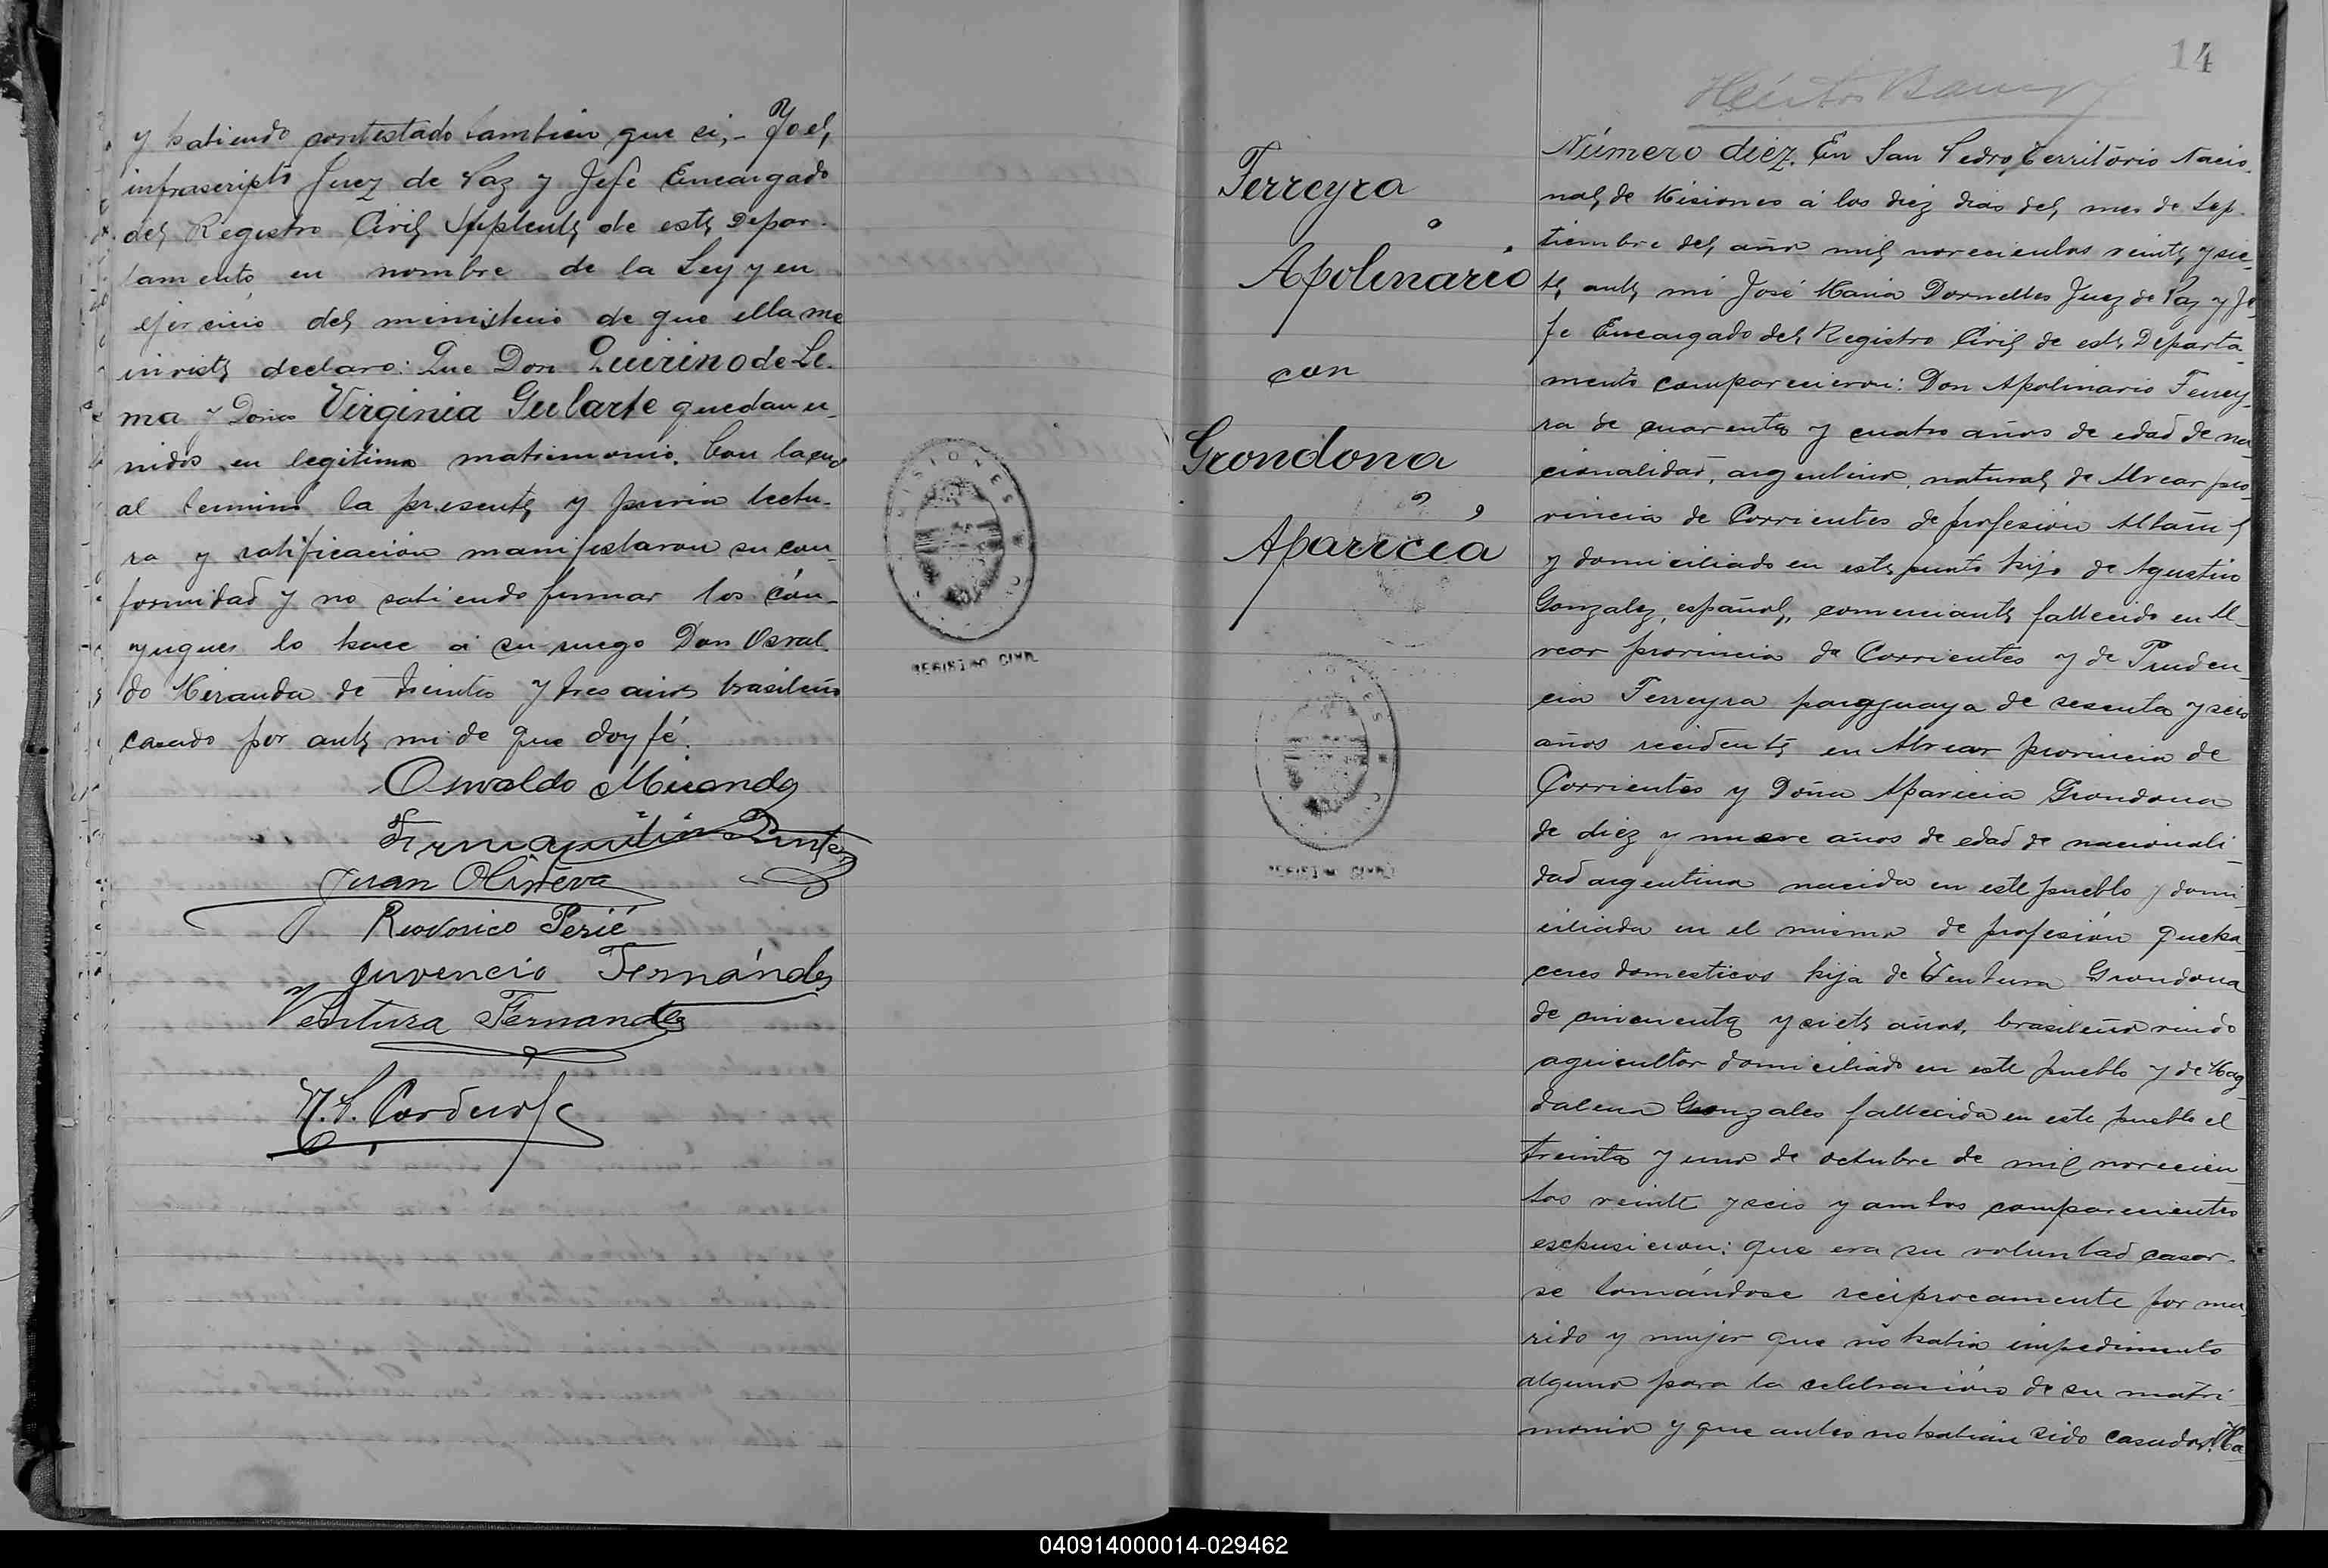 y habiendo contestado tambien que si,- Yo el,
infrascripto Juez de Paz y Jefe Encargado
del Registro Civil Suplente de este Depar-
tamento en nombre de la Ley y en
ejercicio del ministerio de que ella me
inviste declaro: Que Don Quirino de Le-
ma y Doña Virginia Gularte quedan u-
nidos en legitimo matrimonio. Con la cu
al termino la presente y previa lectu-
ra y ratificación manifestaron su con-
formidad y no sabiendo firmar los cón-
yuges lo hace a su ruego Don Osval-
do Miranda de treinta y tres años brasileño
casado por ante mi de que doy fé.
Oswaldo Miranda
Juan Oliveva
Rodorico Perié
Juvencio Fernández
Ventura Fernandez
Cordero
REGISTRO CIVIL
14
Ferreyra
Apolinario
con
Grondona
Aparicia
REGISTRO CIVIL
Número diez. En San Pedro, Territorio Nacio-
nal, de Misiones á los diez dias del, mes de Sep-
tiembre del, año mil, novecientos veinte, y sie-
te, ante, mi José Maria Dornelles Juez de Paz y Je-
fe Encargado del Registro Civil, de este Departa-
mento comparecieron: Don Apolinario Ferrey-
ra de cuarenta y cuatro años de edad de na-
cionalidad, argentino, natural, de Alvear pro-
vincia de Corrientes de profesión Albañil
y domiciliado en este punto hijo de Agustin
Gonzalez, español, comerciante fallecido en Al-
vear provincia de Corrientes y de Pruden-
cia Ferreyra paraguaya de sesenta y seis
años residente en Alvear provincia de
Corrientes y Doña Aparicia Grondona
de diez y nueve años de edad de nacionali-
dad argentina nacida en este pueblo y domi-
ciliada en el mismo de profesión queha-
ceres domesticos hija de Ventura Grondona
de cincuenta y siete años, brasileño viudo
agricultor domiciliado en este pueblo y de Mag-
dalena Gonzales fallecida en este pueblo el
treinta y uno de octubre de mil novecien-
tos veinte y seis y ambos comparecientes
expusieron: que era su voluntad casar-
se tomándose reciprocamente por ma-
rido y mujer que no habia impedimento
alguno para la celebración de su matri-
monio y que antes no habian sido casados. Ha-
040914000014-029462